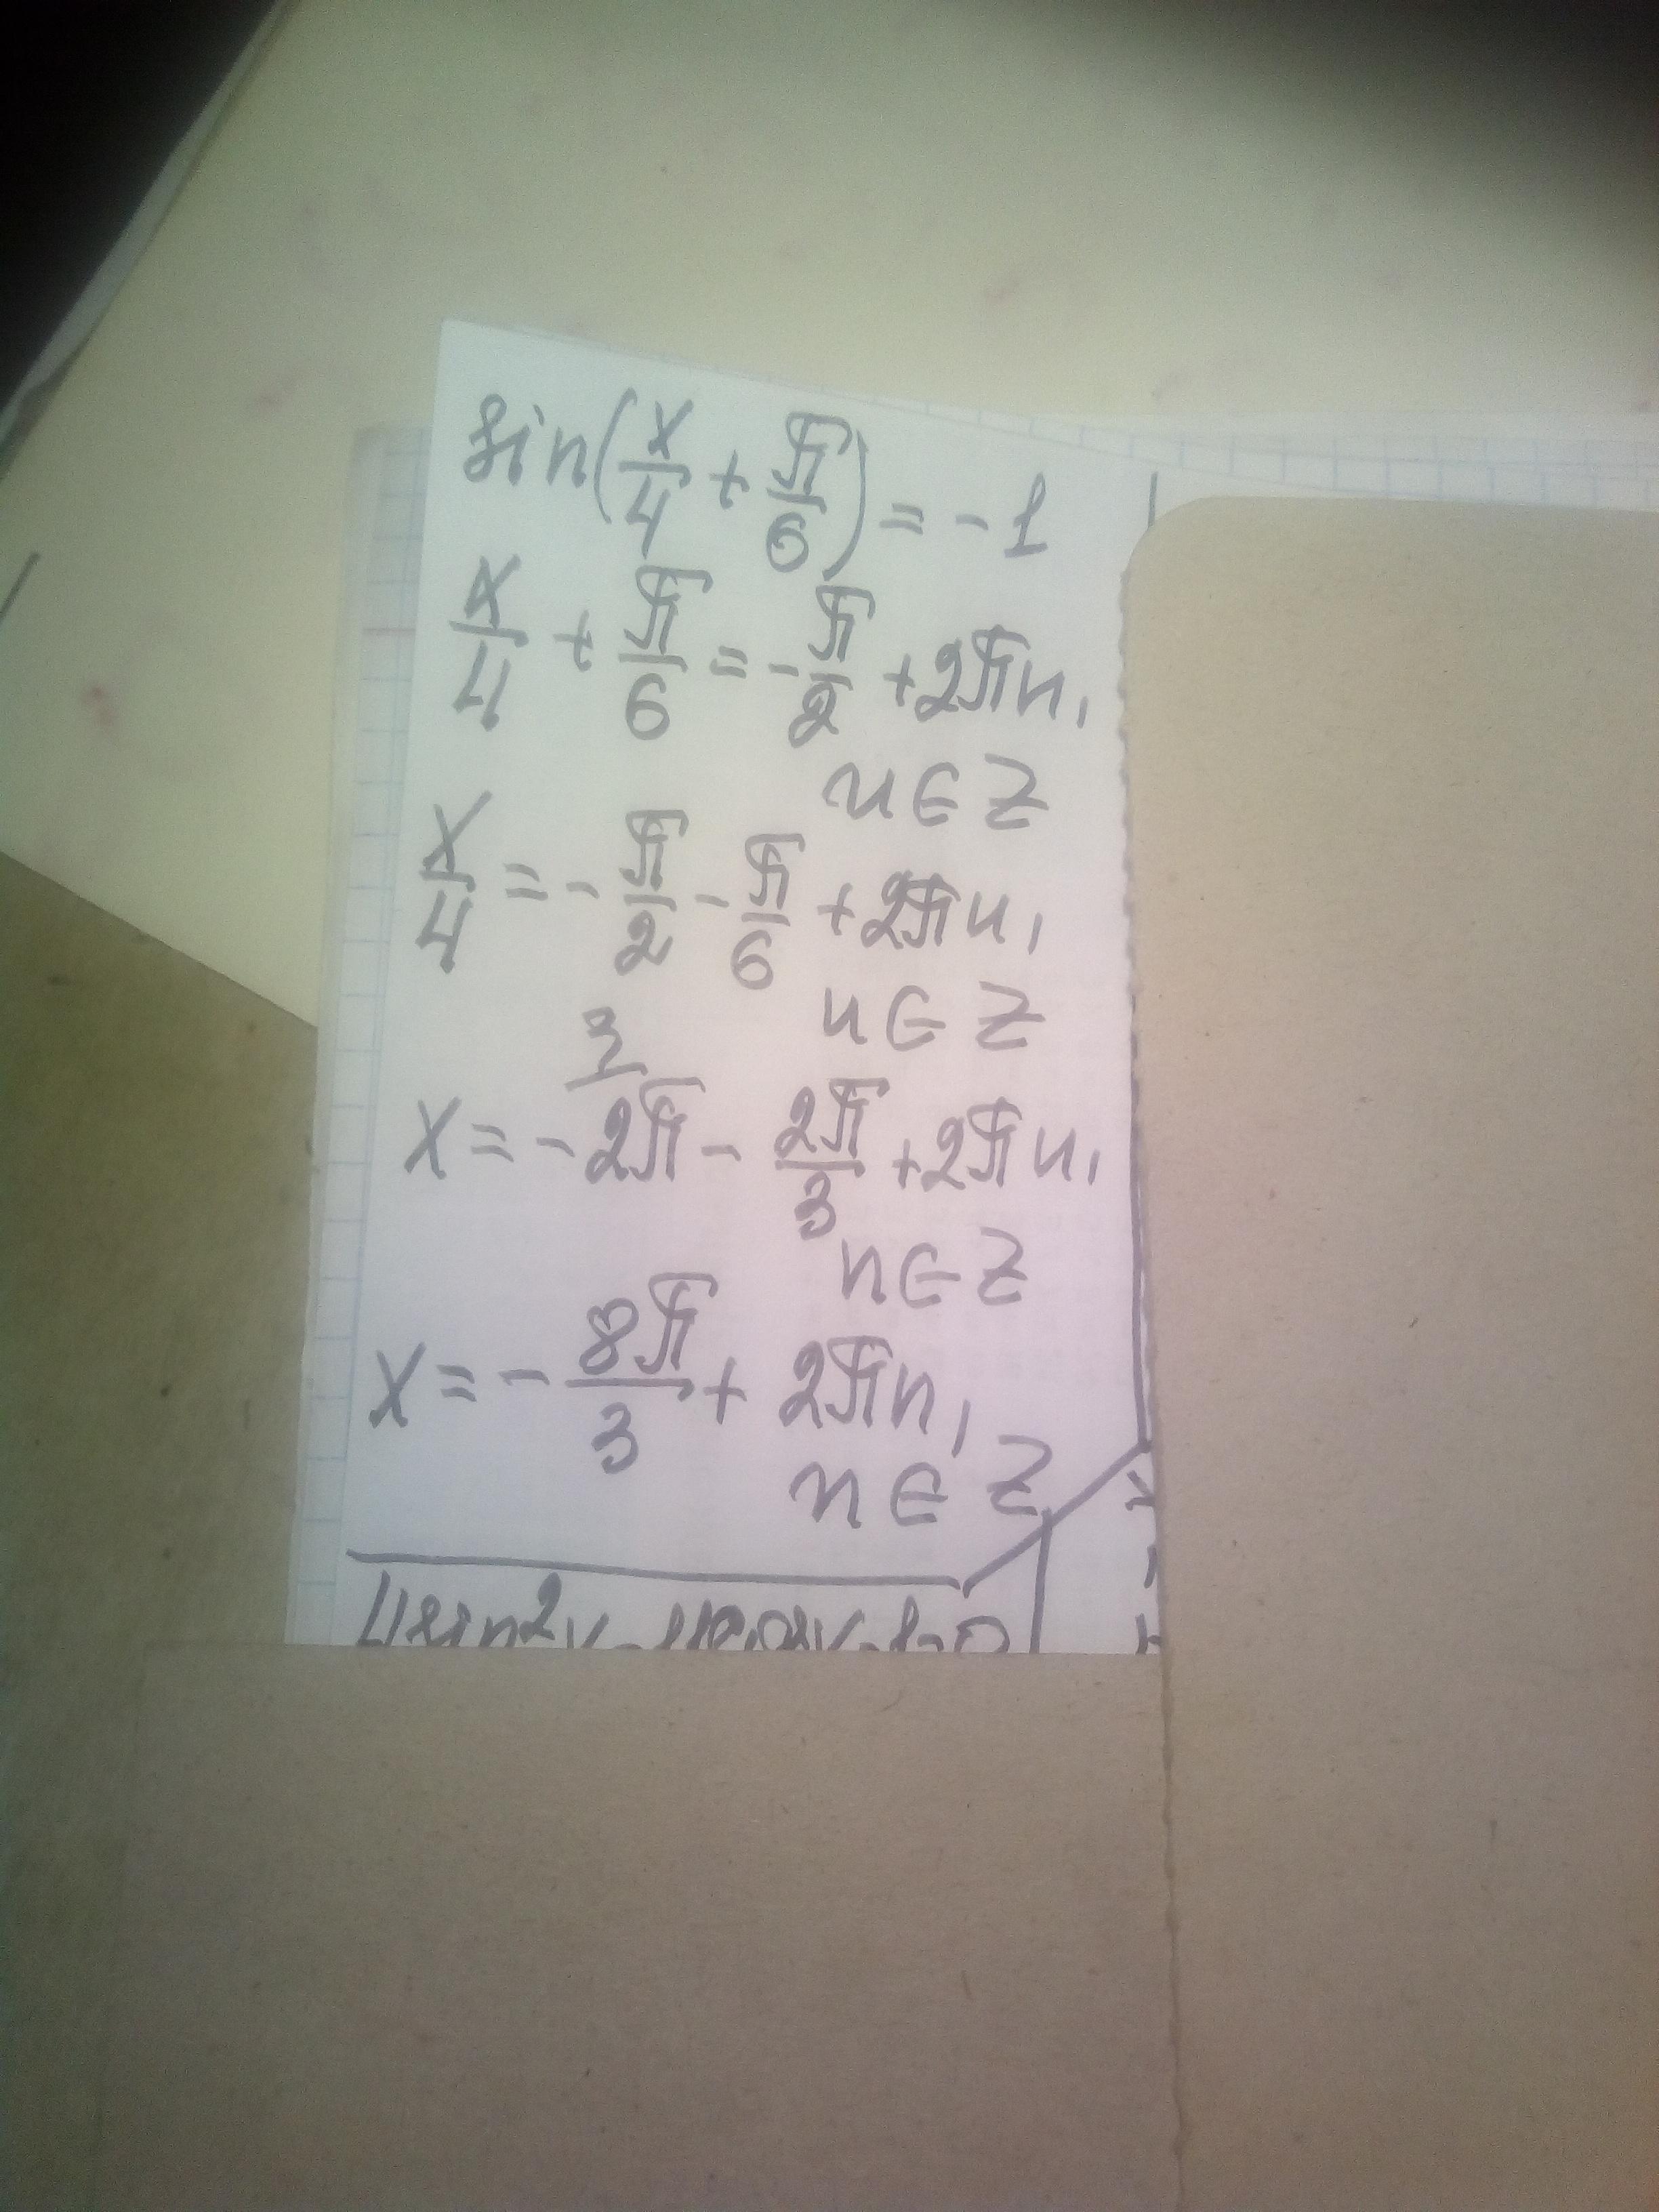 sin(x/4 + π/6) = -1
x/4 + π/6 = -π/2 + 2πn,
n ∈ Z
x/4 = -π/2 - π/6 + 2πn,
n ∈ Z
3
x = -2π - 2π/3 + 2πn,
n ∈ Z
x = -8π/3 + 2πn,
n ∈ Z